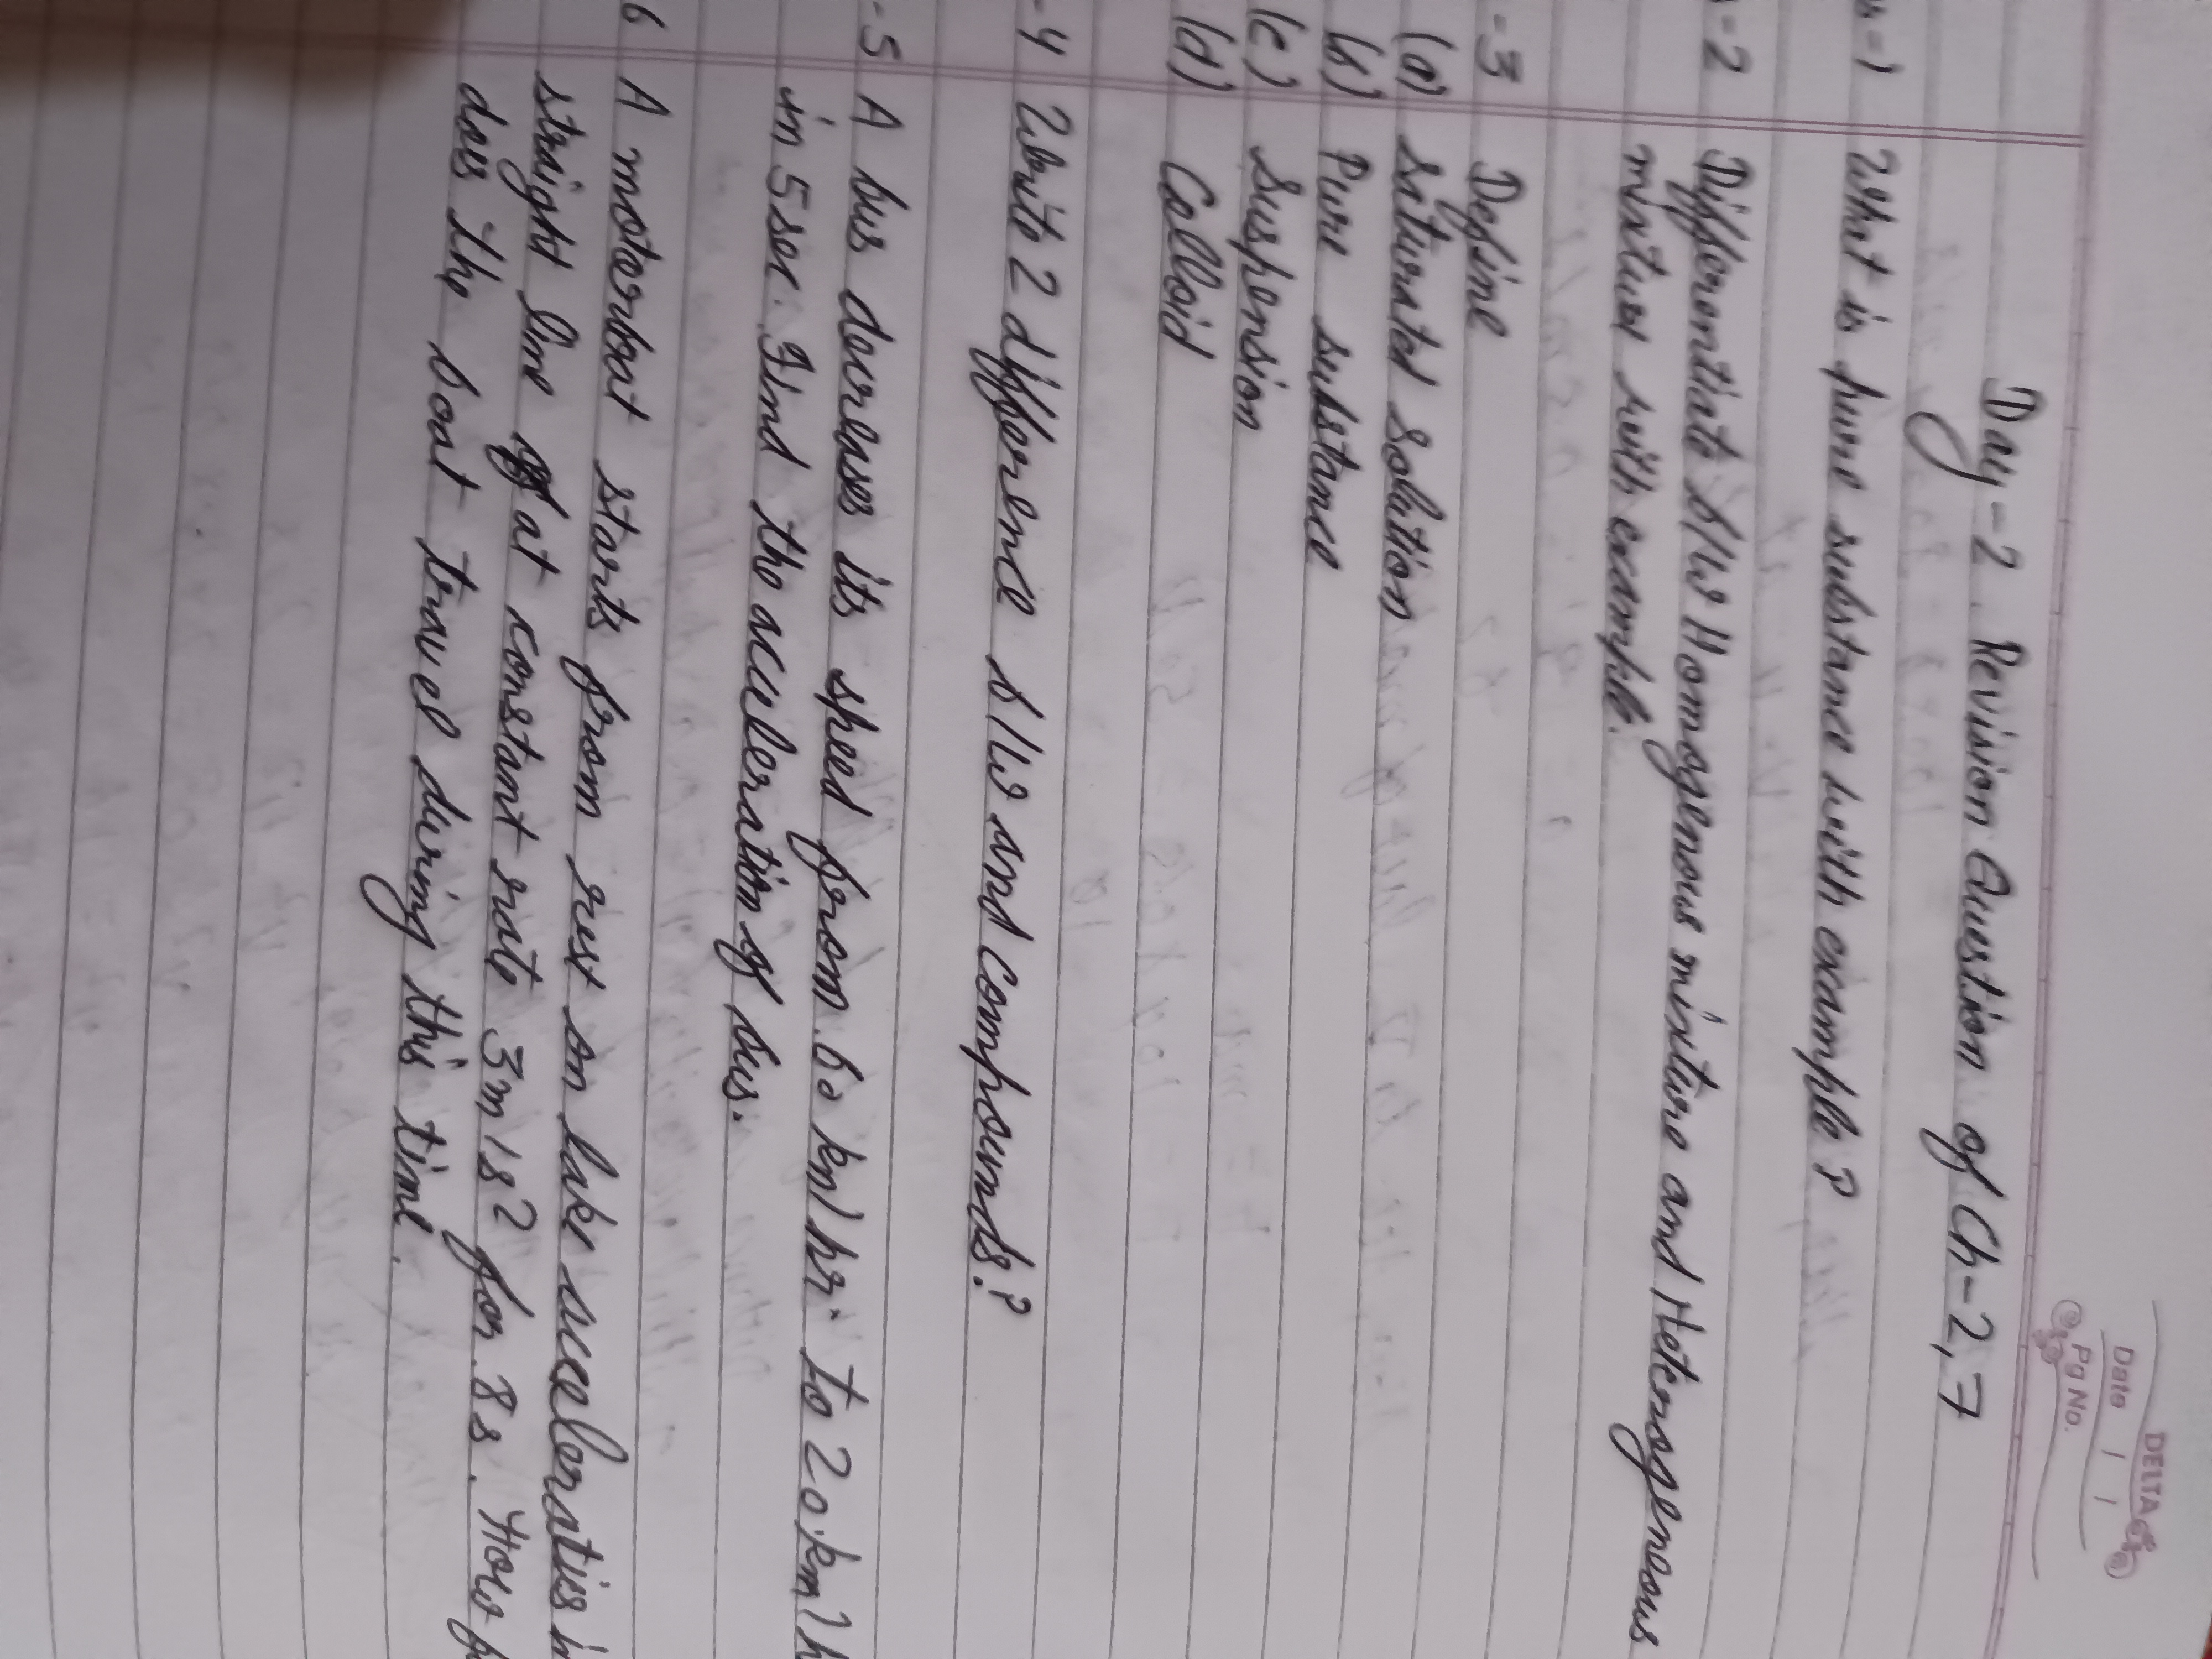 DELTA
Date / /
Pg No.
Day-2 Revision Question of Ch-2,7
=1 What is pure substance with example?
=2 Differentiate b/w Homogenous mixture and Heterogeneous
mixture with example.
-3 Define
(a) saturated solution
(b) Pure substance
(c) Suspension
(d) Colloid
-4 Write 2 difference b/w and compounds?
-5 A bus decreases its speed from 60 km/hr. to 20 km/h
in 5 sec. Find the acceleration of bus.
6 A motorboat starts from rest on lake
straight line at constant rate 3m/s² for 8s. How
does the boat travel during this time.